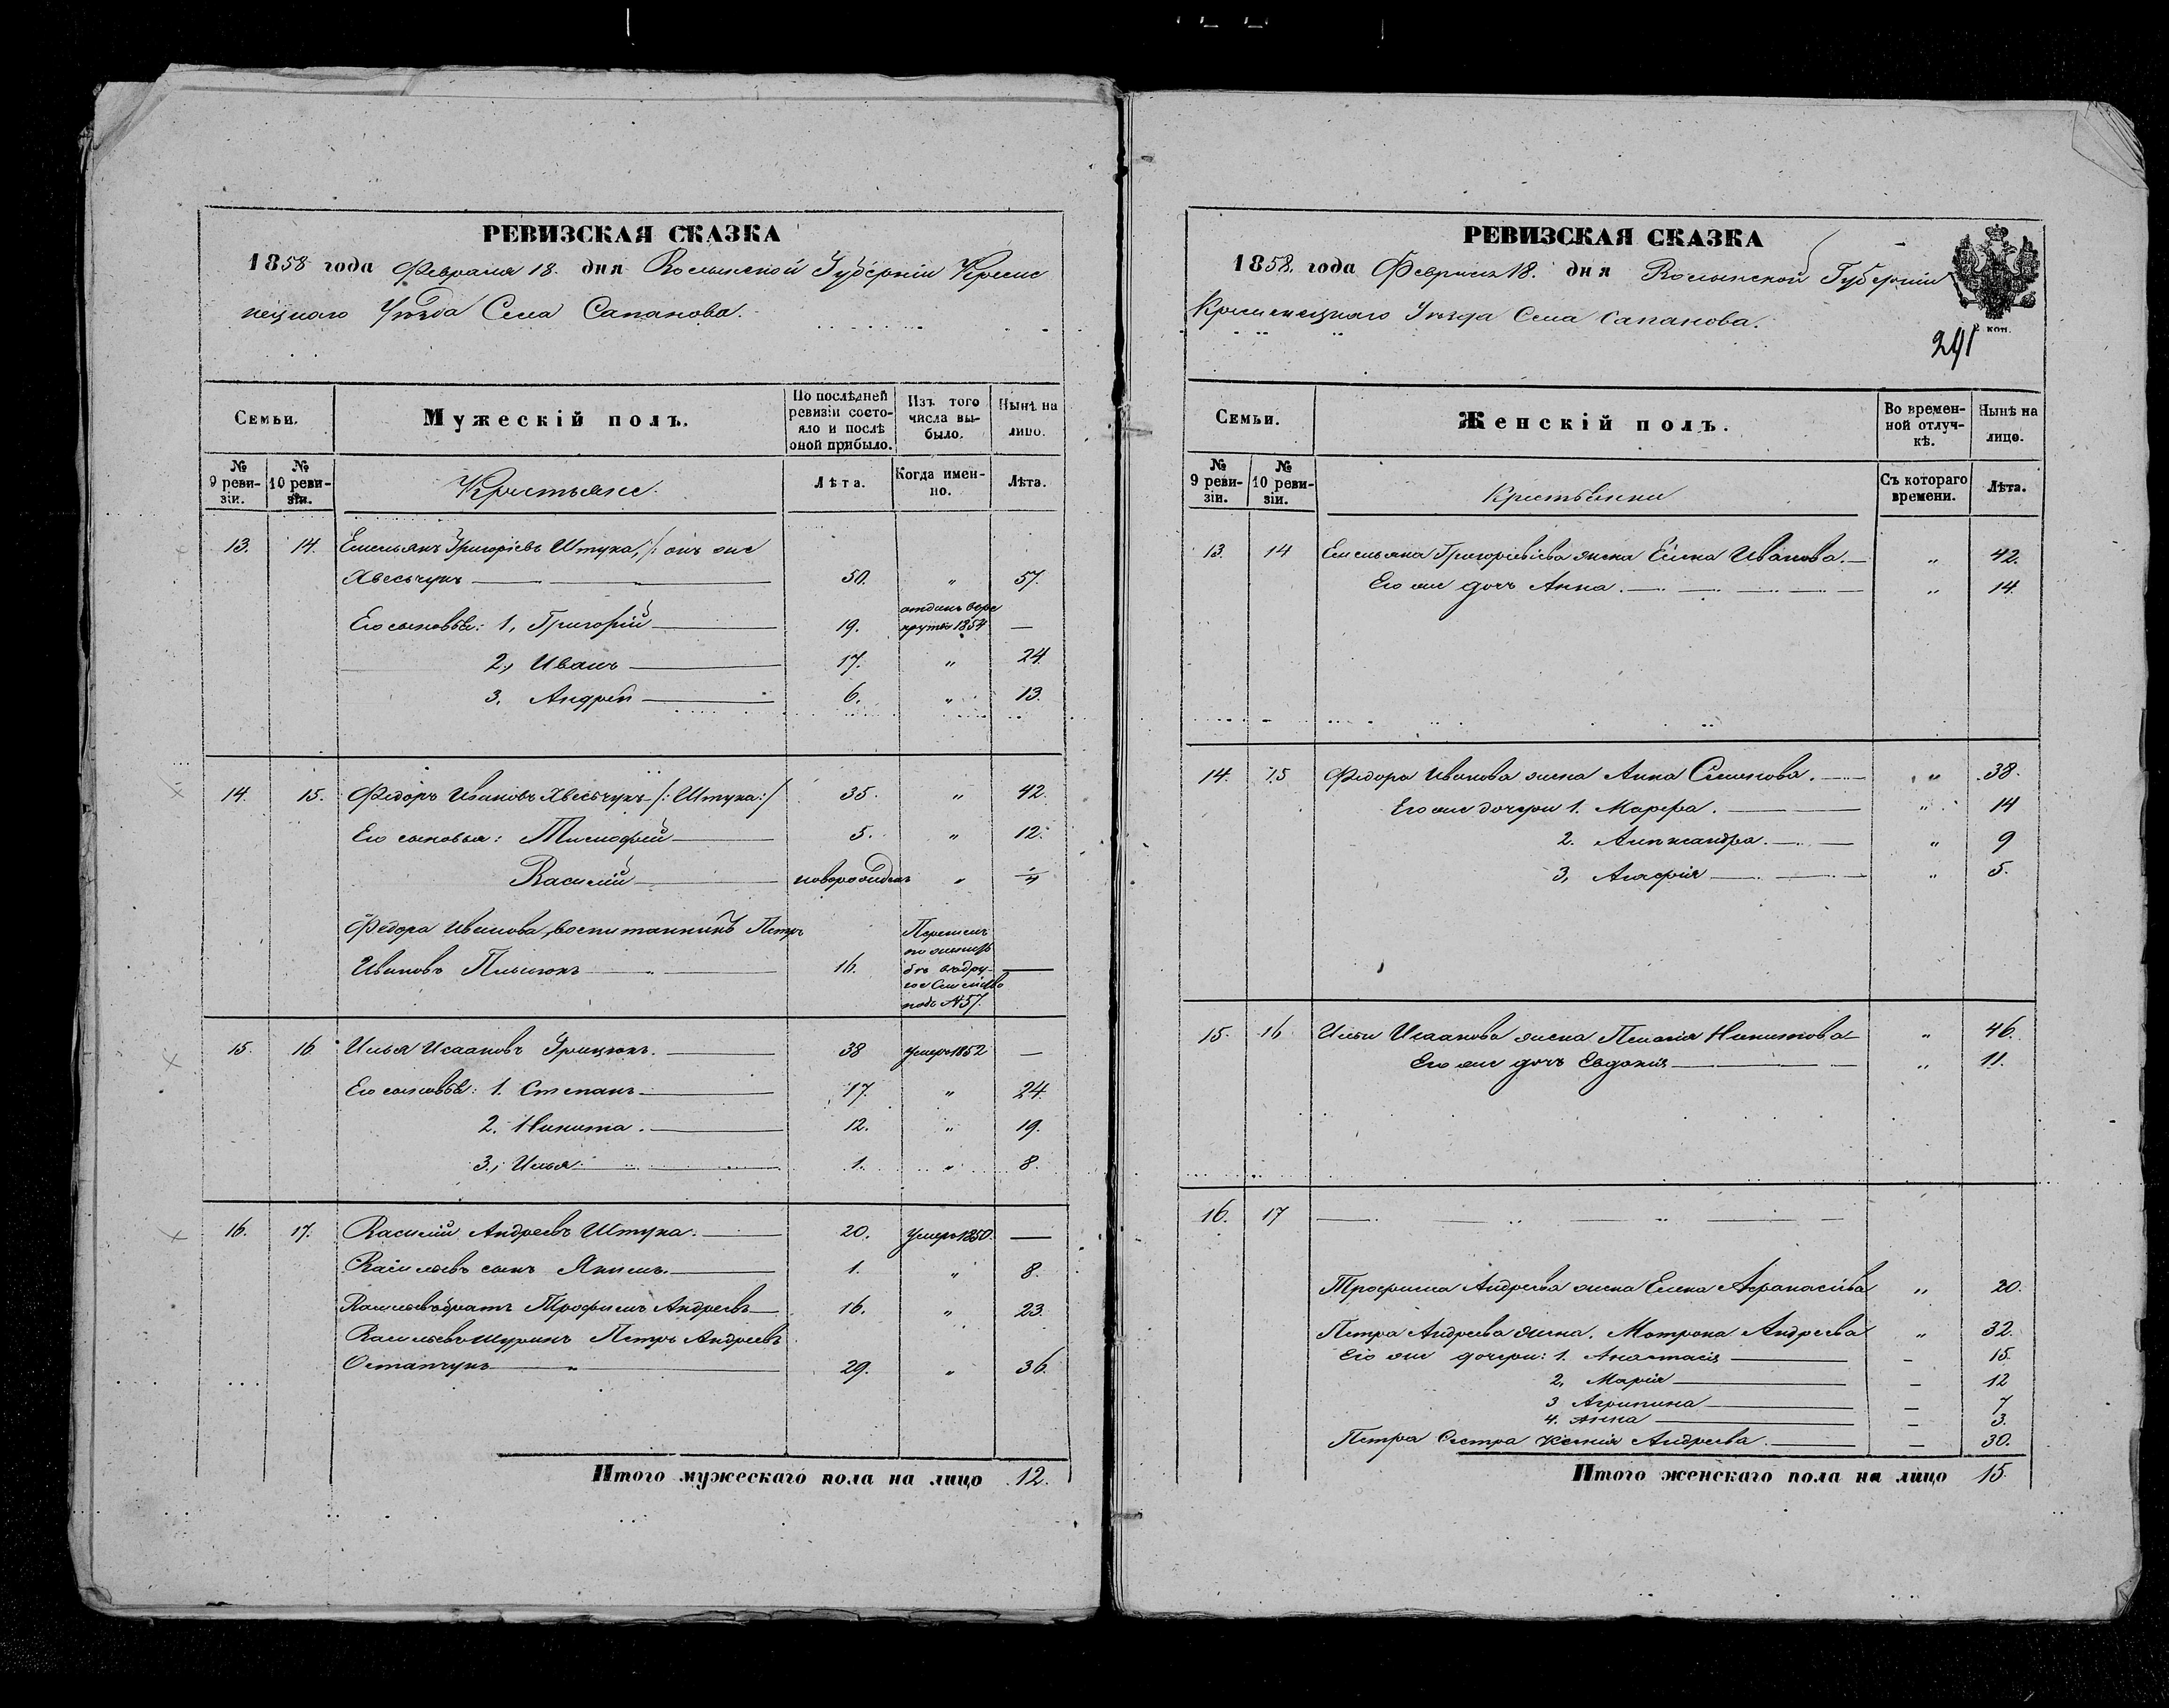 РЕВИЗСКАЯ СКАЗКА
1858 года Февраля 18. дня Волынской Губерніи Креме
нецкаго Уѣзда Села Сапанова.
Семьи.
Мужескій полъ.
По послѣдней
ревизіи состо-
яло и послѣ
оной прибыло.
Изъ того
числа вы-
было.
Нынѣ на
лицо.
№
9 реви-
зіи.
№
10 реви-
зіи.
Крестьяне.
Лѣта.
Когда имен-
но.
Лѣта.
13. 14. Емельянъ Григоріевъ Штука, /: онъ же
Хвесьчукъ 50. " 57.
Его сыновья: 1, Григорій 19. отданъ въ ре
круты 1854 —
2, Иванъ 17. " 24.
3. Андрей 6. " 13.
14. 15. Федоръ Ивановъ Хвесьчукъ /: Штука :/ 35. " 42.
Его сыновья: Тимофей 5. " 12.
Василій новорожден " 4
Федора Иванова воспитанникъ Петръ
Ивановъ 16. —
подъ №57.
15. 16 Илья Исааковъ Грицюкъ. 38 умеръ 1852 —
Его сыновья: 1. Степанъ 17. " 24.
2. Никита. 12. " 19.
3., Илья 1. " 8.
16. 17. Василій Андреевъ Штука. 20. умеръ 1850. —
Васильевъ сынъ Якимъ. 1. " 8.
Васильевъ братъ Трофимъ Андреевъ 16. " 23.
Васильевъ шуринъ Петръ Андреевъ
Остапчукъ 29. " 36.
Итого мужескаго пола на лицо 12.
РЕВИЗСКАЯ СКАЗКА
1858. года Февраля 18. дня Волынской Губерніи
Кременецкаго Уѣзда Села Сапанова.
2 коп.
291
Семьи.
Женскій полъ.
Во времен-
ной отлуч-
кѣ.
Нынѣ на
лицо.
№
9 реви-
зіи.
№
10 реви-
зіи.
Крестьянки
Съ котораго
времени.
Лѣта.
13. 14 Емельяна Григоріевъ жена Елена Иванова. " 42.
Его же дочь Анна. " 14.
14. 15 Федора Иванова жена Анна Семенова. " 38.
Его же дочери 1. Марфа. " 14
2. Александра. " 9
3, Агафія " 5.
15. 16 Ильи Исаакова жена Пелагія Никитова " 46.
Его же дочь Евдокія " 11.
16. 17
Трофима Андреева жена Елена Афанасіева " 20.
Петра Андреева жена. Матрона Андреева " 32.
Его же дочери: 1. Анастасія — 15
2, Марія — 12
3 Агрипина — 7
4. Анна — 3.
Петра Сестра Ксенія Андреева — 30.
Итого женскаго пола на лицо 15.